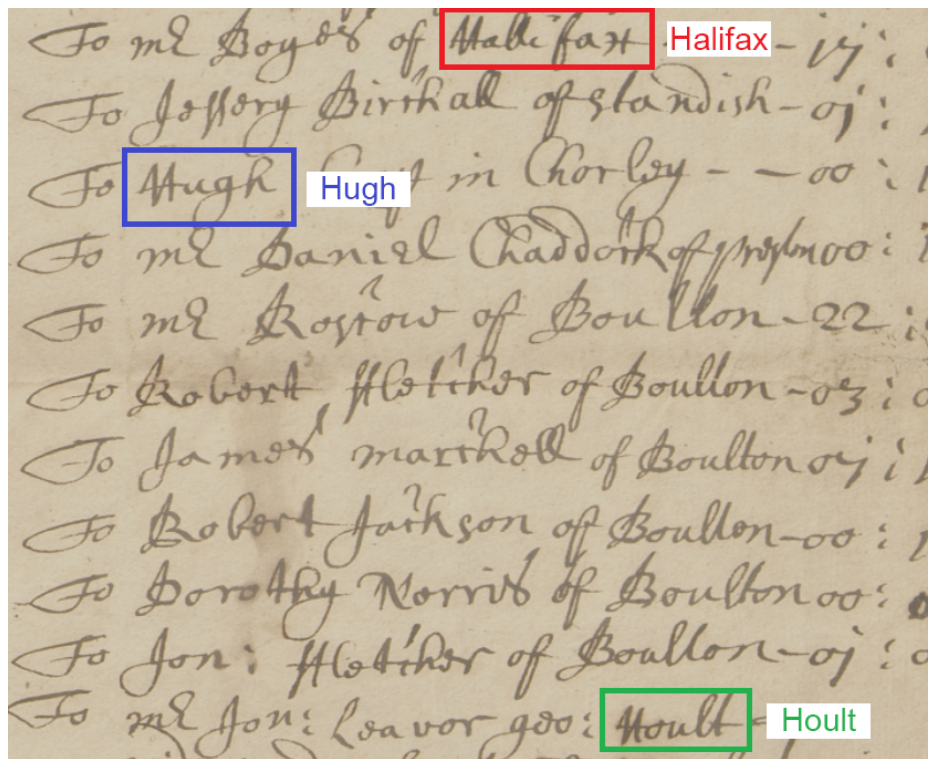 To mr Boyes of Hallifax Halifax - 17 :
To Jeffery Birchall of Standish - 01 :
To Hugh Hugh in Chorley - - 00 :
To mr Daniel Chaddock of preston 00 :
To mr Rostow of Boulton - 22 :
To Robert ffletcher of Boulton - 03 :
To James marckell of Boulton 01 :
To Robert Jackson of Boulton - 00 :
To Dorothy Norris of Boulton 00 :
To Jon : ffletcher of Boulton - 01 :
To mr Jon : Leavor geo : Hoult - Hoult